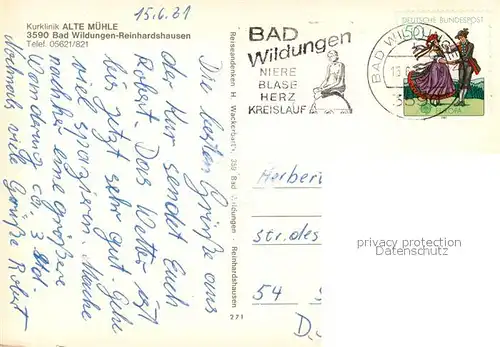 Kurklinik ALTE MÜHLE
3590 Bad Wildungen-Reinhardshausen
Telef. 05621/821
15.6.81
Die besten Grüße aus
der Kur sendet Euch
Robert. Das Wetter ist
bis jetzt sehr gut. Gehe
viel spazieren. Mache
nachher eine größere
Wanderung ca. 3 Std.
Nochmals viele Grüße Robert
Reiseandenken H. Wackerbarth, 359 Bad Wildungen - Reinhardshausen
271
BAD
Wildungen
NIERE
BLASE
HERZ
KREISLAUF
BAD WIL
DEUTSCHE BUNDESPOST
50
Herber
str. des
54
D.
privacy protection
Datenschutz